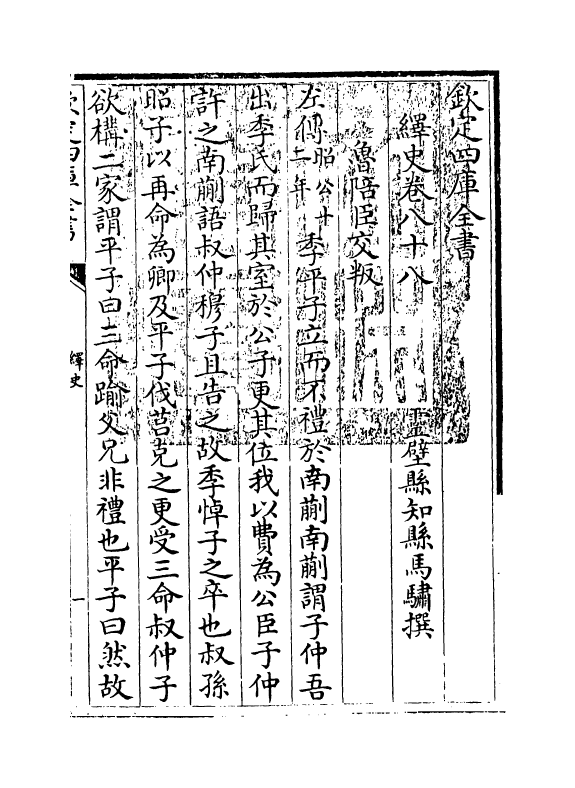 欽定四庫全書
繹史卷八十八
靈壁縣知縣馬驌撰
魯陪臣交叛
左傳昭公十二年季平子立而不禮於南蒯南蒯謂子仲吾
出季氏而歸其室於公子更其位我以費為公臣子仲
許之南蒯語叔仲穆子且告之故季悼子之卒也叔孫
昭子以再命為卿及平子伐莒克之更受三命叔仲子
欲構二家謂平子曰三命踰父兄非禮也平子曰然故
欽定四庫全書
繹史
一